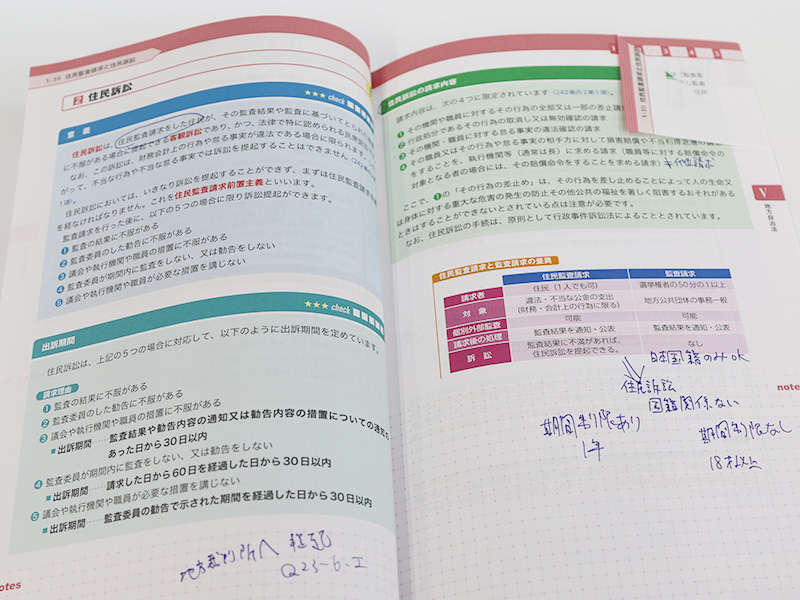 V-10 住民監査請求と住民訴訟
2 住民訴訟
意義
★★★ check
住民訴訟は、住民監査請求をした住民が、その監査結果や監査に基づいてとられた
に不服がある場合に提起できる客観訴訟であり、かつ、法律で特に認められる民衆訴訟
なお、この訴訟は、財務会計上の行為や怠る事実が違法である場合に限られます
がって、不当な行為や不当な怠る事実では訴訟を提起することはできません(242条の
1項)。
住民訴訟においては、いきなり訴訟を提起することができず、まずは住民監査請求
を経なければなりません。これを住民監査請求前置主義といいます。
監査請求を行った後に、以下の5つの場合に限り訴訟提起ができます。
❶ 監査の結果に不服がある
❷ 監査委員のした勧告に不服がある
❸ 議会や執行機関や職員の措置に不服がある
❹ 監査委員が期間内に監査をしない、又は勧告をしない
❺ 議会や執行機関や職員が必要な措置を講じない
出訴期間
★★★ check
住民訴訟は、上記の5つの場合に対応して、以下のように出訴期間を定めています。
請求理由
❶ 監査の結果に不服がある
❷ 監査委員のした勧告に不服がある
❸ 議会や執行機関や職員の措置に不服がある
■出訴期間……監査結果や勧告内容の通知又は勧告内容の措置についての通知の
あった日から30日以内
❹ 監査委員が期間内に監査をしない、又は勧告をしない
■出訴期間……請求した日から60日を経過した日から30日以内
❺ 議会や執行機関や職員が必要な措置を講じない
■出訴期間……監査委員の勧告で示された期間を経過した日から30日以内
地方裁判所へ 提起
Q23-6-エ
notes
住民訴訟の請求内容
請求内容は、次の4つに限定されています(242条の2第1項)。
❶ その機関や職員に対するその行為の全部又は一部の差止請
❷ 行政処分であるその行為の取消し又は無効確認の請求
❸ その機関・職員に対する怠る事実の違法確認の請求
❹ その職員又はその行為や怠る事実の相手方に対して損害賠償や不当利得返還の請求
をすることを、執行機関等(通常は長)に求める請求(職員等に対する賠償命令の
対象となる者の場合には、その賠償命令をすることを求める請求)
キ他位請求
ここで、❶の「その行為の差止め」は、その行為を差し止めることによって人の生命又
は身体に対する重大な危害の発生の防止その他公共の福祉を著しく阻害するおそれがある
ときはすることができないとされている点は注意が必要です。
なお、住民訴訟の手続は、原則として行政事件訴訟法によることとされています。
住民監査請求と監査請求の差異
住民監査請求 監査請求
請求者 住民(1人でも可) 選挙権者の50分の1以上
対象 違法・不当な公金の支出 地方公共団体の事務一般
(財務・会計上の行為に限る)
個別外部監査 可能 可能
請求後の処理 監査結果を通知・公表 監査結果を通知・公表
訴訟 監査結果に不満があれば、 なし
住民訴訟を提起できる。
日本国籍のみOK
住民訴訟
国籍関係ない
期間制限あり
1年
期間制限なし
18才以上
notes
V
地方自治法